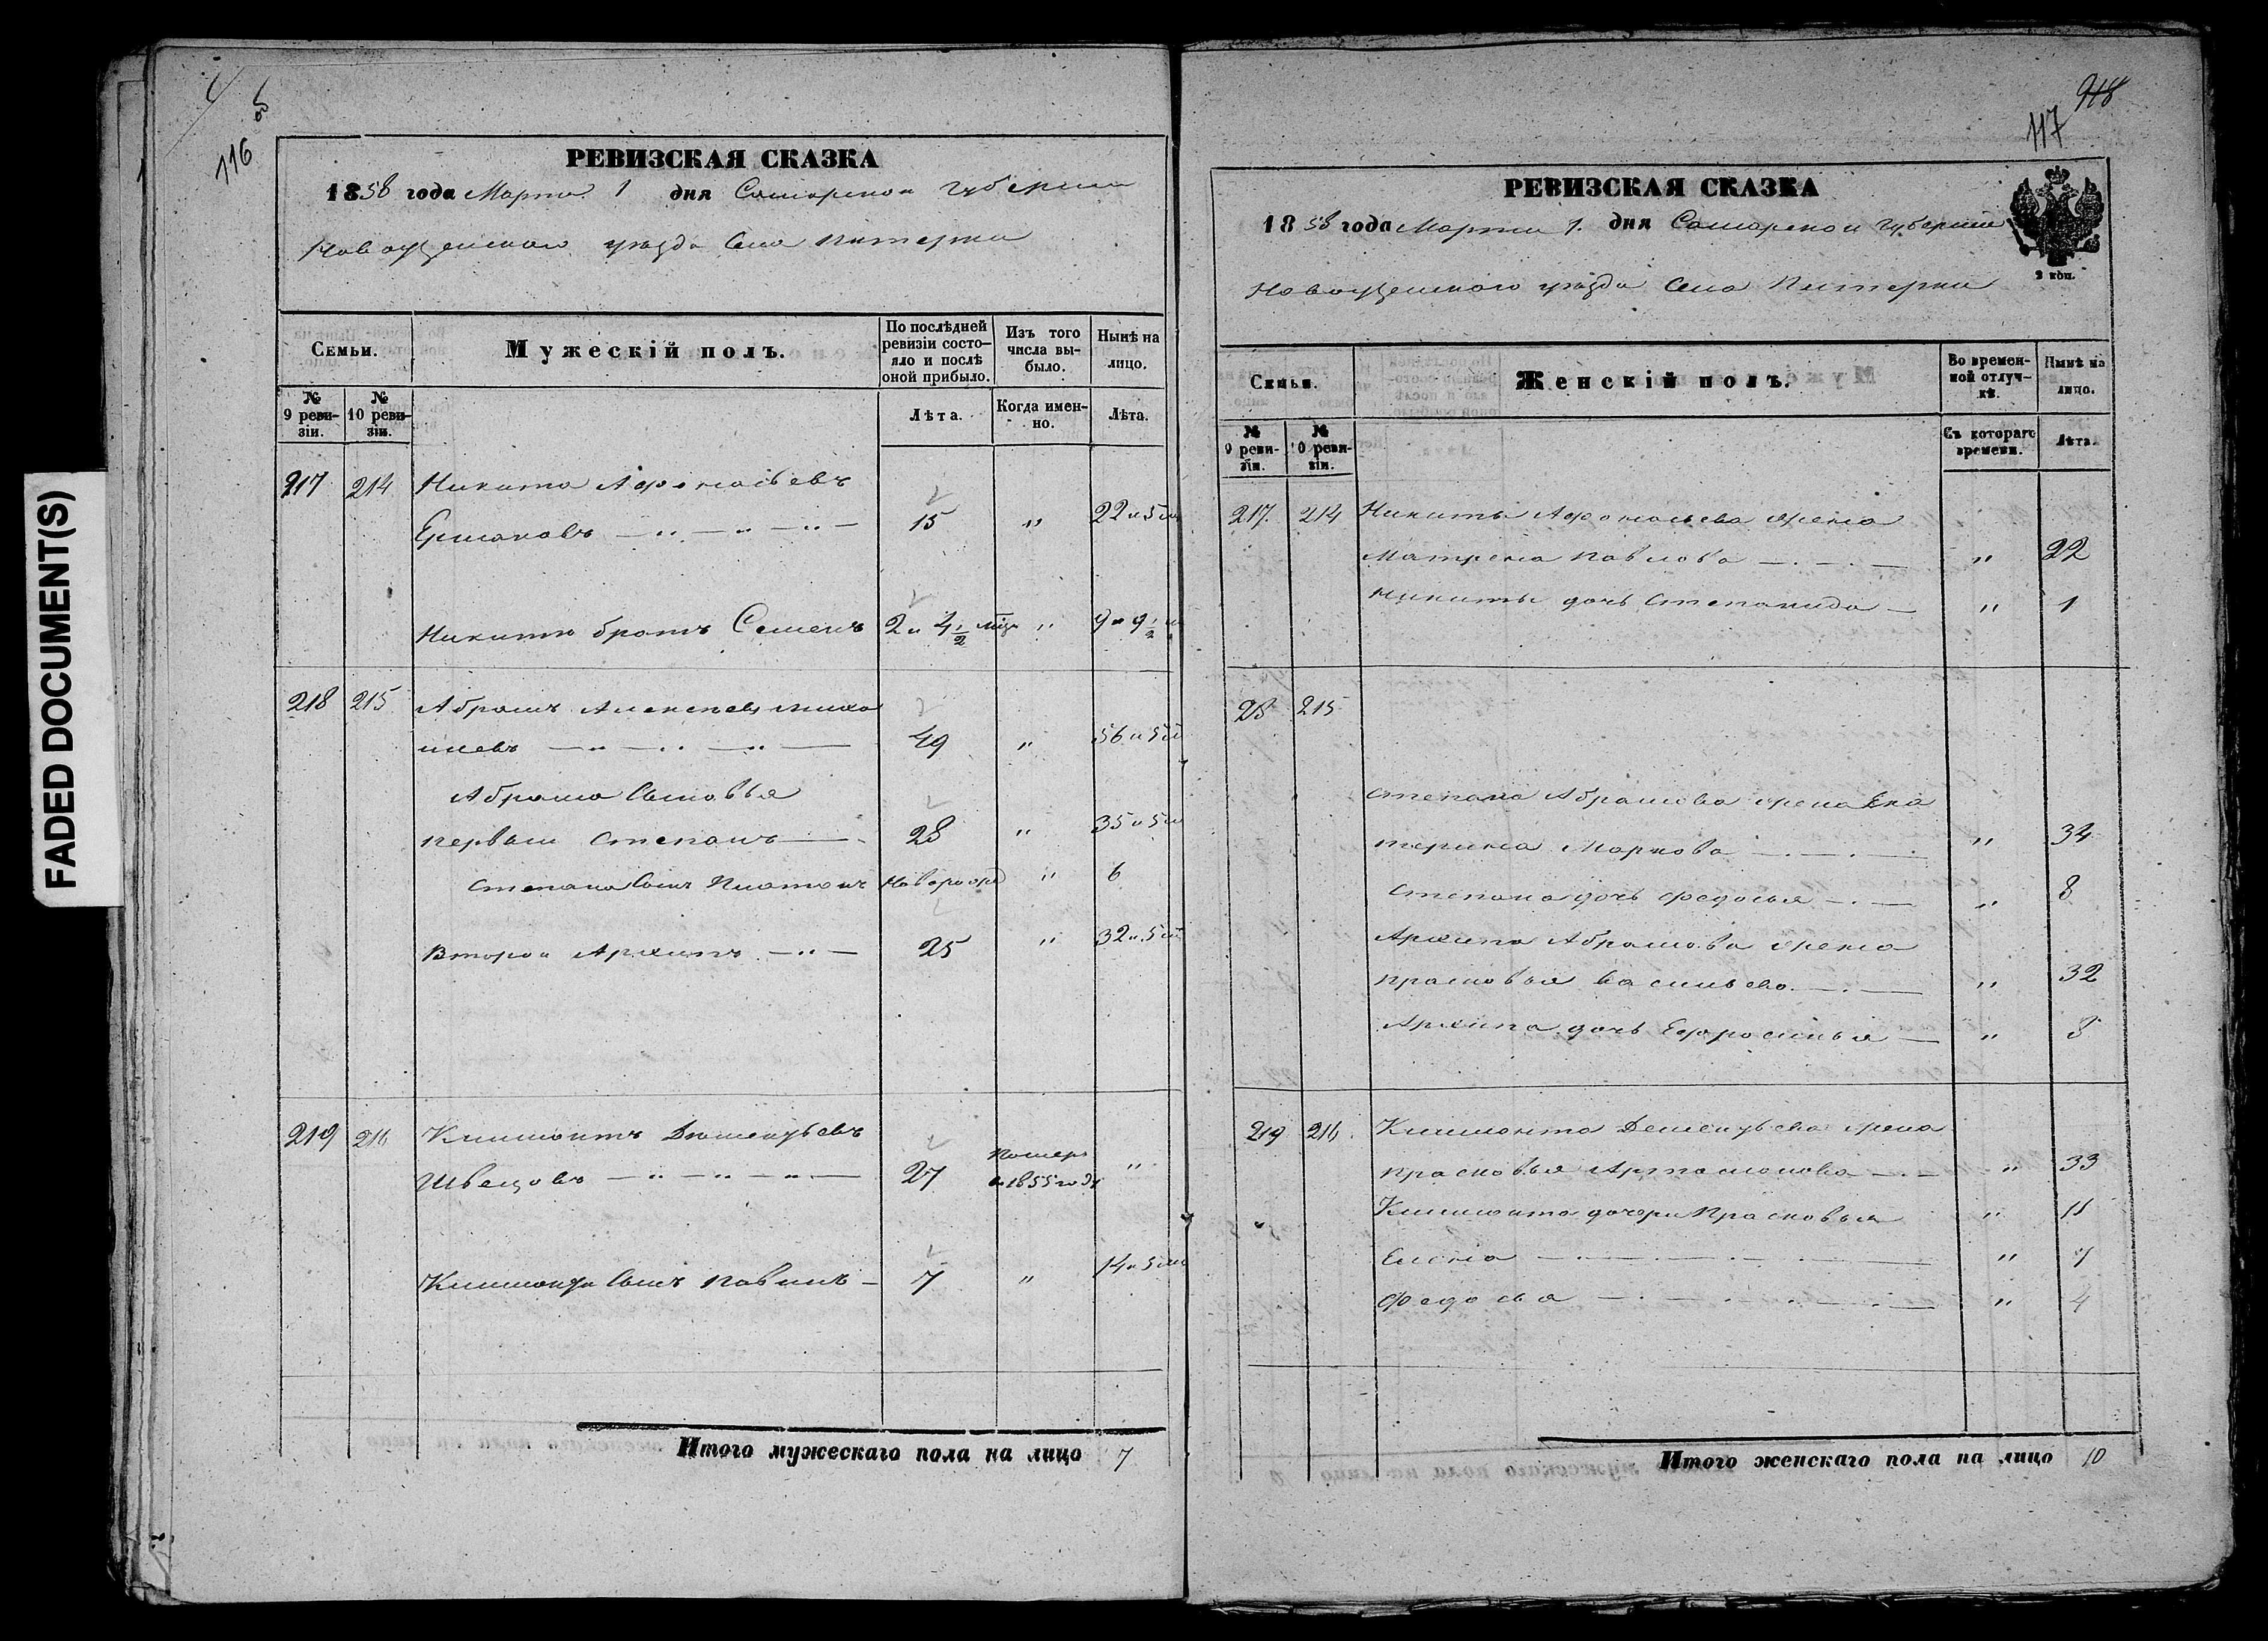 FADED DOCUMENT(S)
116
РЕВИЗСКАЯ СКАЗКА
1858 года Марта 1 дня Самарской губернии
Новоузенского уезда Села Питерки
Семьи.
Мужескій полъ.
По послѣдней ревизіи состояло и послѣ оной прибыло.
Изъ того числа выбыло.
Нынѣ на лицо.
№ 9 ревизіи.
№ 10 ревизіи.
Лѣта.
Когда именно.
Лѣта.
217 214 Никита Афонасьевъ
Ермаковъ 15 " 22 и 5 м
Никиты братъ Семенъ 2 и 4 1/2 мѣс " 9 и 9 1/2 м
218 215 Абрамъ Алексеевъ Михаи
илевъ 49 " 56 и 5 м
Абрама Сыновья
первый Степанъ 28 " 35 и 5 м
Степана Сынъ Платонъ Новорожд " 6
Второй Архипъ 25 " 32 и 5 м
219 216 Климонтъ Дементьевъ
Швецовъ 27 помер в 1855 году "
Климонта Сынъ Павилъ 7 " 14 и 5 м
Итого мужескаго пола на лицо 7
918
117
РЕВИЗСКАЯ СКАЗКА
1858 года Марта 1. дня Самарской Губернии
2 коп.
Новоузенского уезда Села Питерки
Семьи.
Женскій полъ.
Во временной отлучкѣ.
Нынѣ на лицо.
№ 9 ревизіи.
№ 10 ревизіи.
Съ котораго времени.
Лѣта.
217. 214 Никиты Афонасьева жена
Матрена Павлова " 22
Никиты дочь Степанида " 1
215
Степана Абрамова жена Ека
терина Маркова " 34
Степана дочь Федосья " 8
Архипа Абрамова жена
прасковья васильева " 32
Архипа дочь Ефросинья " 8
219 216. Климонта Дементьева жена
прасковья Артамонова " 33
Климонта дочери Прасковья " 11
Елена " 7
Федосья " 4
Итого женскаго пола на лицо 10